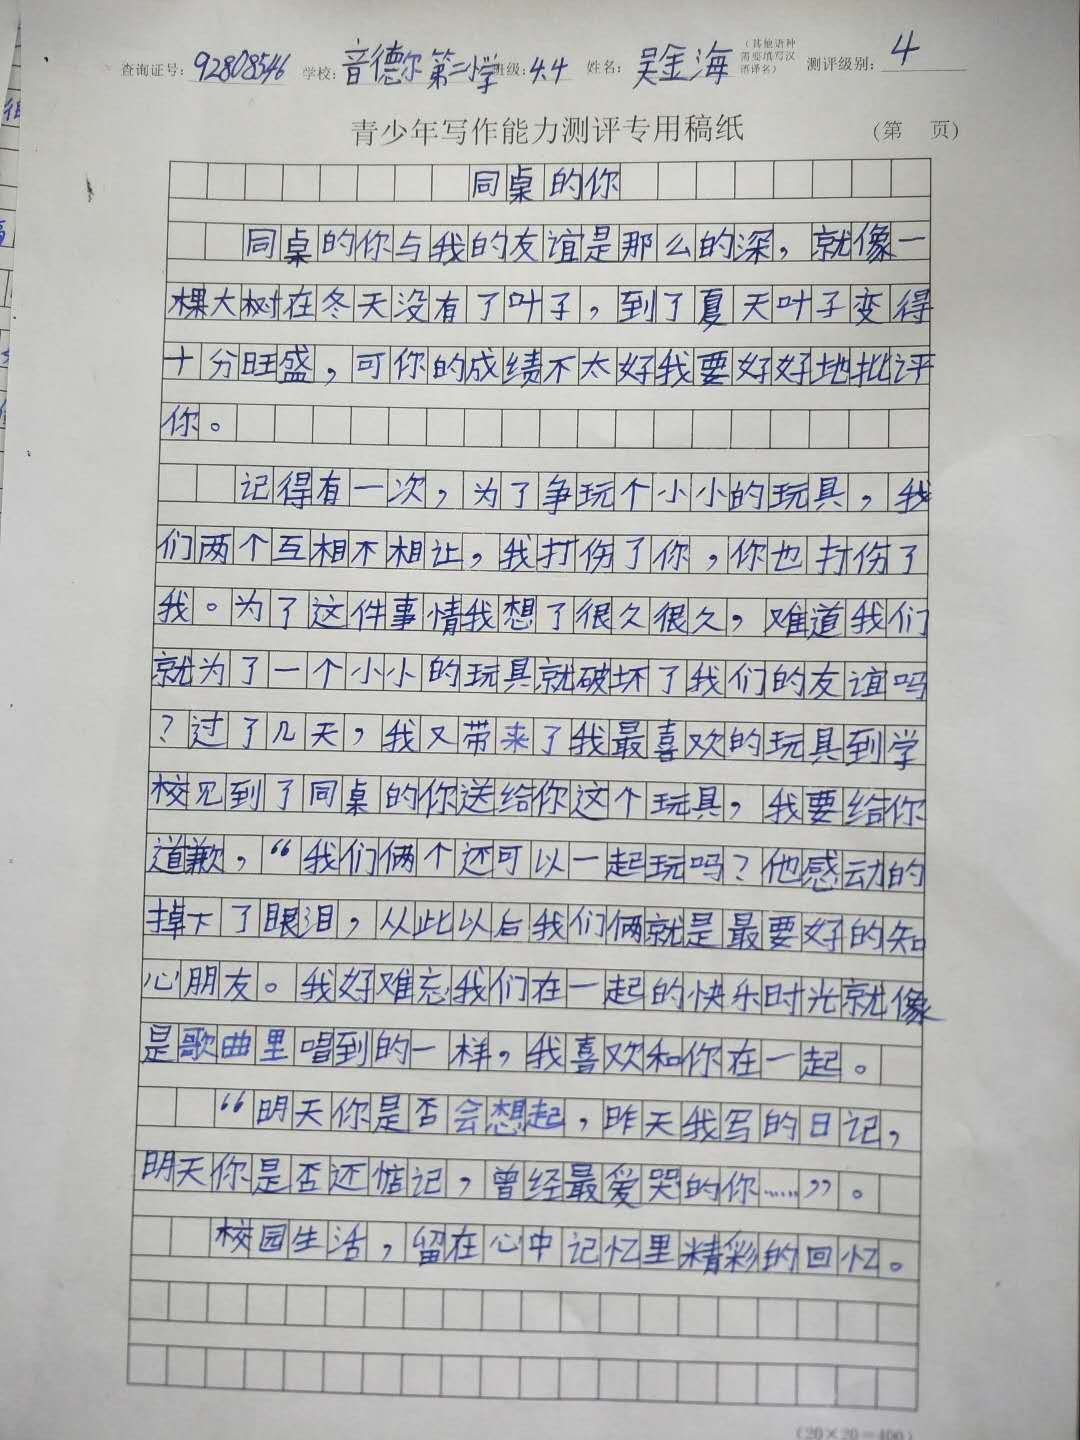 查询证号: 92808546 学校: 音德尔第二小学 班级: 4.4 姓名: 吴金海 (其他语种需要填写汉语译名) 测评级别: 4
青少年写作能力测评专用稿纸 (第 页)
同桌的你
同桌的你与我的友谊是那么的深，就像一
棵大树在冬天没有了叶子，到了夏天叶子变得
十分旺盛，可你的成绩不太好我要好好地批评
你。
记得有一次，为了争玩个小小的玩具，我
们两个互相不相让，我打伤了你，你也打伤了
我。为了这件事情我想了很久很久，难道我们
就为了一个小小的玩具就破坏了我们的友谊吗
？过了几天，我又带来了我最喜欢的玩具到学
校见到了同桌的你送给你这个玩具，我要给你
道歉，“我们俩个还可以一起玩吗？他感动的
掉下了眼泪，从此以后我们俩就是最要好的知
心朋友。我好难忘我们在一起的快乐时光就像
是歌曲里唱到的一样，我喜欢和你在一起。
“明天你是否会想起，昨天我写的日记，
明天你是否还惦记，曾经最爱哭的你……”。
校园生活，留在心中记忆里精彩的回忆。
(20×20=400)